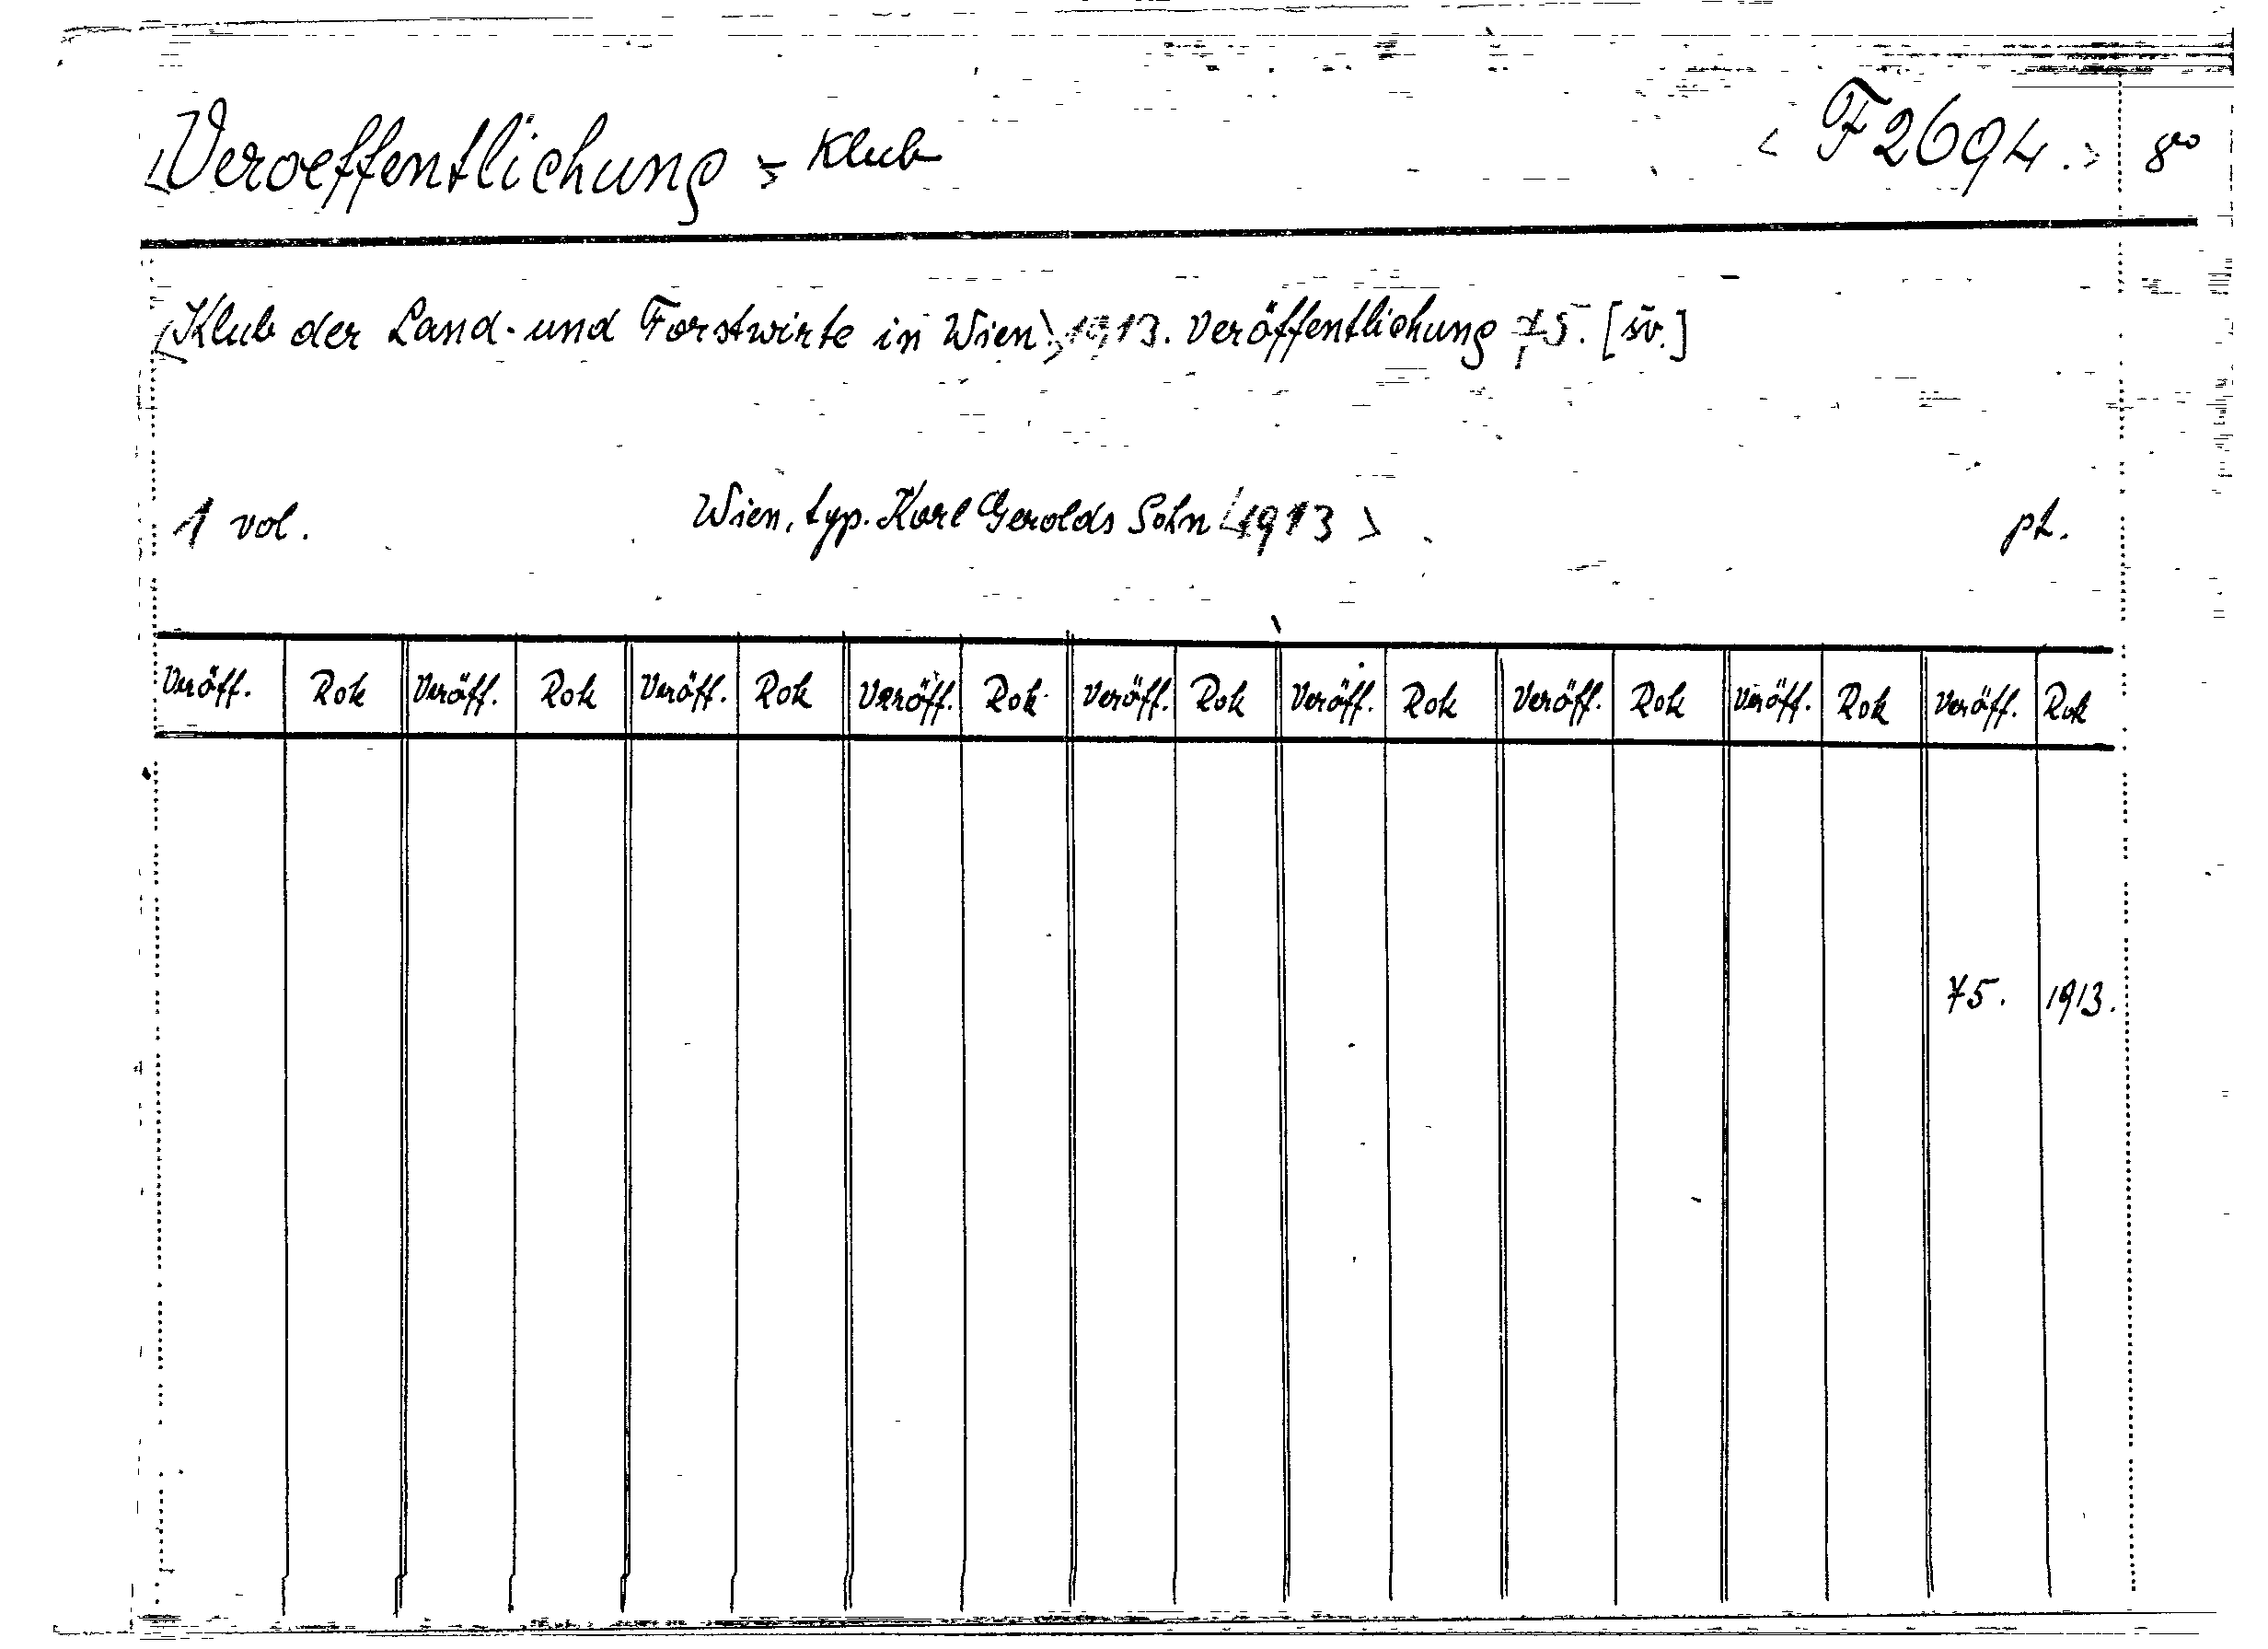 <Veroeffentlichung> Klub <F2694.> 8vo
<Klub der Land- und Forstwirte in Wien.> 1913. Veröffentlichung 75. [sv.]
1 vol. Wien, typ. Karl Gerolds Sohn <1913>. pt.
Veröff. Rok Veröff. Rok Veröff. Rok Veröff. Rok Veröff. Rok Veröff. Rok Veröff. Rok Veröff. Rok Veröff. Rok
75. 1913.